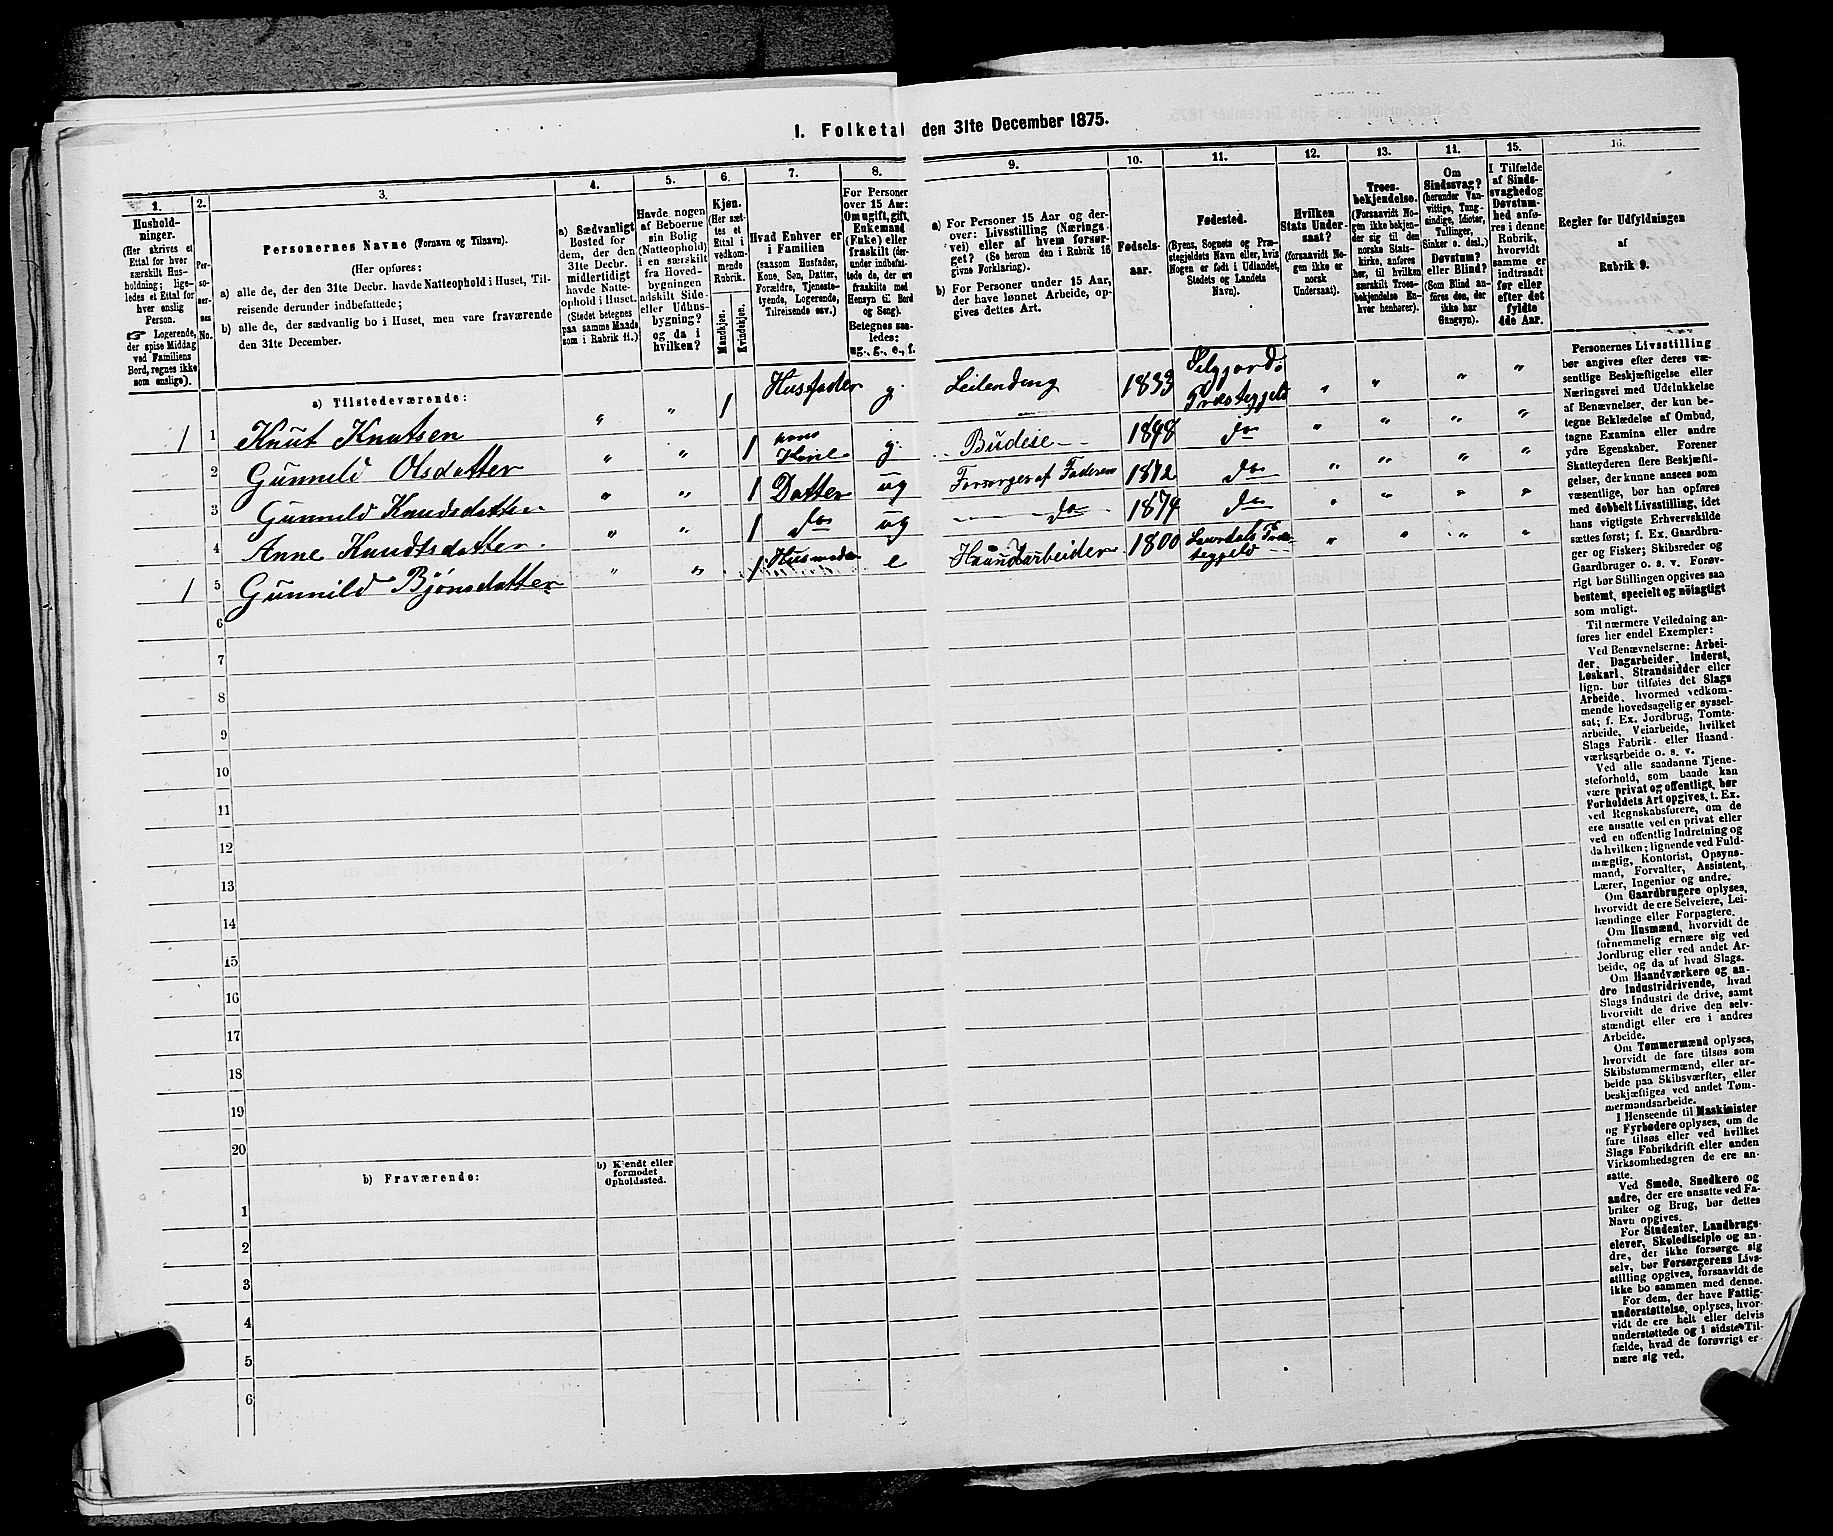 1. Folketal den 31te December 1875.
1.
Hushold-
ninger.
(Her skrives et
Ettal for hver
særskilt Hus-
holdning; lige-
ledes et Ettal for
hver enslig
Person.
☞ Logerende,
der spise Middag
ved Familiens
Bord, regnes ikke
som enslige).
2.
Per-
so-
ner-
nes
No.
3.
Personernes Navne (Fornavn og Tilnavn).
(Her opføres:
a) alle de, der den 31te Decbr. havde Natteophold i Huset, Til-
reisende derunder indbefattede;
b) alle de, der sædvanlig bo i Huset, men vare fraværende
den 31te December.
4.
a) Sædvanligt
Bosted for
dem, der den
31te Decbr.
midlertidigt
havde Natte-
ophold i Huset.
(Stedet betegnes
paa samme Maade
som i Rubrik 11.)
5.
Havde nogen
af Beboerne
sin Bolig
(Natteophold)
i en særskilt
fra Hoved-
bygningen
adskilt Side-
eller Udhus-
bygning?
og da i
hvilken?
6.
Kjøn.
(Her sæt-
tes et
Ettal i
vedkom-
mende
Rubrik.
Mandkjøn.
Kvindekjøn.
7.
Hvad Enhver er
i Familien
(saasom Husfader,
Kone, Søn, Datter,
Forældre, Tjeneste-
tyende, Logerende,
Tilreisende osv.)
8.
For Personer
over 15 Aar:
Om ugift, gift,
Enkemand
(Enke) eller
fraskilt (der-
under indbefat-
tede de, der ere
fraskilte med
Hensyn til Bord
og Seng).
Betegnes saa-
ledes:
ug., g., e., f.
9.
a) For Personer 15 Aar og der-
over: Livsstilling (Nærings-
vei) eller af hvem forsør-
get? (Se herom den i Rubrik 16
givne Forklaring).
b) For Personer under 15 Aar,
der have lønnet Arbeide, op-
gives dettes Art.
10.
Fødsels-
aar.
11.
Fødested.
(Byens, Sognets og Præ-
stegjeldets Navn eller, hvis
Nogen er født i Udlandet,
Stedets og Landets
Navn).
12.
Hvilken
Stats Under-
saat?
(forsaavidt No-
gen ikke er
norsk
Undersaat).
13.
Troes-
bekjendelse.
(Forsaavidt No-
gen ikke bekjen-
der sig til den
norske Stats-
kirke, anføres
her, til hvilken
særskilt Troes-
bekjendelse En-
hver henhører).
14.
Om
Sindssvag?
(herunder Van-
vittige, Tung-
sindige, Idioter,
Tullinger,
Sinker o. desl.)
Døvstum?
eller Blind?
(Som Blind an-
føres den, der
ikke har
Gangsyn).
15.
I Tilfælde
af Sinds-
svaghed og
Døvstum-
hed anfø-
res i denne
Rubrik,
hvorvidt
samme er
indtraadt
før eller
efter det
fyldte
4de Aar.
16.
Regler for Udfyldningen
af
Rubrik 9.
a) Tilstedeværende:
1 1 Knut Knutsen " " 1 Husfader g. Leilending 1833 Præstegjeld " " " "
2 Gunnild Olsdatter " " 1 g. Budeie 1848 do " " " "
3 Gunnild Knudsdatter " " 1 Datter ug Forsørges af Faderen 1872 do " " " "
4 Anne Knudtsdatter " " 1 do ug do 1874 do " " " "
1 5 Gunnild Bjønsdatter " " 1 Husmoder e Haandarbeider 1800 Laurdals Præ-
stegjeld " " " "
6
7
8
9
10
11
12
13
14
15
16
17
18
19
20
b) Fraværende:
b) Kjendt eller
formodet
Opholdssted.
1
2
3
4
5
6
Personernes Livsstilling
bør angives efter deres væ-
sentlige Beskjæftigelse eller
Næringsvei med Udelukkelse
af Benævnelser, der kun be-
tegne Beklædelse af Ombud,
tagne Examina eller andre
ydre Egenskaber. Forener
Skatteyderen flere Beskjæfti-
gelser, der kunne ansees som
væsentlige, bør han opføres
med dobbelt Livsstilling, idet
hans vigtigste Erhvervskilde
sættes først; f. Ex. Gaardbru-
ger og Fisker; Skibsreder og
Gaardbruger o. s. v. Forøv-
rigt bør Stillingen opgives saa
bestemt, specielt og nöiagtigt
som muligt.
Til nærmere Veiledning an-
føres her endel Exempler:
Ved Benævnelserne: Arbei-
der, Dagarbeider, Inderst,
Løskarl, Strandsidder eller
lign. bør tilføies det Slags
Arbeide, hvormed vedkom-
mende hovedsagelig er syssel-
sat; f. Ex. Jordbrug, Tomte-
arbeide, Veiarbeide, hvilket
Slags Fabrik- eller Haand-
værksarbeide o. s. v.
Ved alle saadanne Tjene-
steforhold, som baade kan
være privat og offentligt, bør
Forholdets Art opgives, t. Ex.
ved Regnskabsførere, om de
ere ansatte ved en privat eller
ved en offentlig Indretning og
da hvilken; lignende ved Fuld-
mægtig, Kontorist, Opsyns-
mand, Forvalter, Assistent,
Lærer, Ingeniør og andre.
Om Gaardbrugere oplyses,
hvorvidt de ere Selveiere, Lei-
lændinge eller Forpagtere.
Om Husmænd, hvorvidt de
fornemmelig ernære sig ved
Jordbrug eller ved andet Ar-
beide, og da af hvad Slags.
Om Haandværkere og an-
dre Industridrivende, hvad
Slags Industri de drive, samt
hvorvidt de drive den selv-
stændigt eller ere i andres
Arbeide.
Om Tømmermænd oplyses,
hvorvidt de fare tilsøs som
Skibstømmermænd, eller ar-
beide paa Skibsværfter, eller
beskjæftiges ved andet Tøm-
mermandsarbeide.
I Henseende til Maskinister
og Fyrbødere oplyses, om de
fare tilsøs eller ved hvilket
Slags Fabrikdrift eller anden
Virksomhedsgren de ere an-
satte.
Ved Smede, Snedkere og
andre, der ere ansatte ved Fa-
briker og Brug, bør dettes
Navn opgives.
For Studenter, Landbrugs-
elever, Skoledisciple og an-
dre, der ikke forsørge sig
selv, bør Forsørgerens Livs-
stilling opgives, forsaavidt de
ikke bo sammen med denne.
For dem, der have Fattig-
understøttelse, oplyses, hvor-
vidt de ere helt eller delvis
understøttede og i sidste Til-
fælde, hvad de forøvrigt er-
nære sig ved.